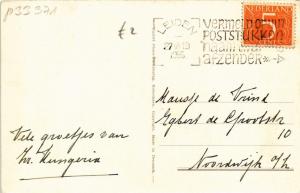 p33371
£2
LEIDEN
1955
VERMELD OP UW
POSTSTUKKEN
NAAM EN
AFZENDER
NEDERLAND
5
Mausje de Vrind
Egbert de Grootstr
10
Noordwijk a/z
Vele groetjes van